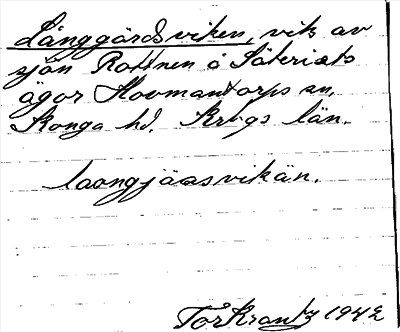 Långgärdsviken, vik av
sjön Rottnen å Säteriets
ägor Hovmantorps sn.
Konga hd. Krbgs län.
laongjäasvikän.
Tor Krantz 1942